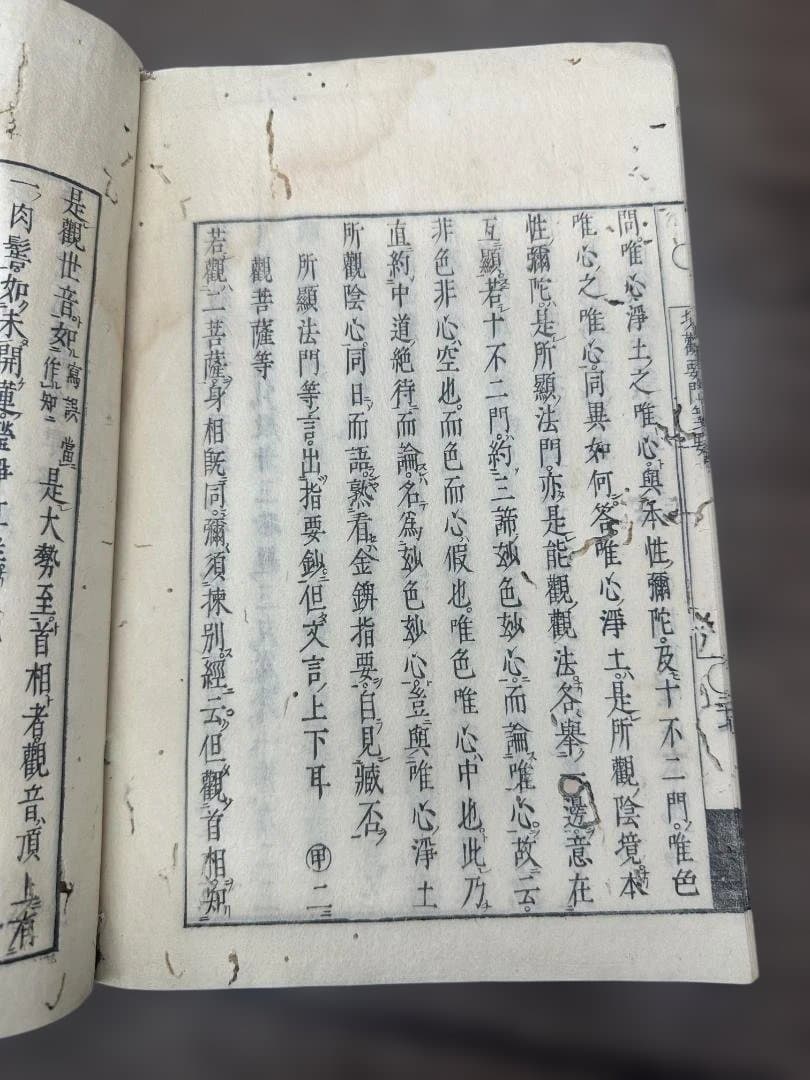 問唯心淨土之唯心與本性彌陀及十不二門唯色
唯心之唯心同異如何答唯心淨土是所觀陰境本
性彌陀是所顯法門亦是能觀觀法各舉一邊意在
互顯若十不二門約三諦妙色妙心而論唯心故云
非色非心空也而色而心假也唯色唯心中也此乃
直約中道絶待而論名爲妙色妙心豈與唯心淨土
所觀陰心同日而語熟看金錍指要自見臧否
所顯法門等言出指要鈔但文言上下耳 甲二
觀菩薩等
若觀二菩薩身相旣同彌須揀別經云但觀首相知
是觀世音如寫誤當作知是大勢至首相者觀音頂上有
一肉髻如未開蓮